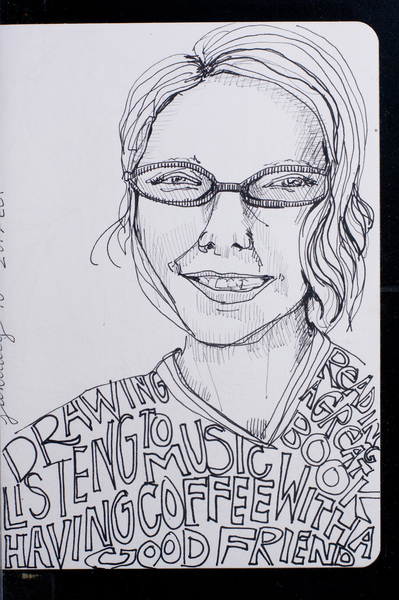 DRAWING
LISTENG TO MUSIC
HAVING COFFEE WITH A
GOOD FRIEND
READING
A GREAT
BOOK
January